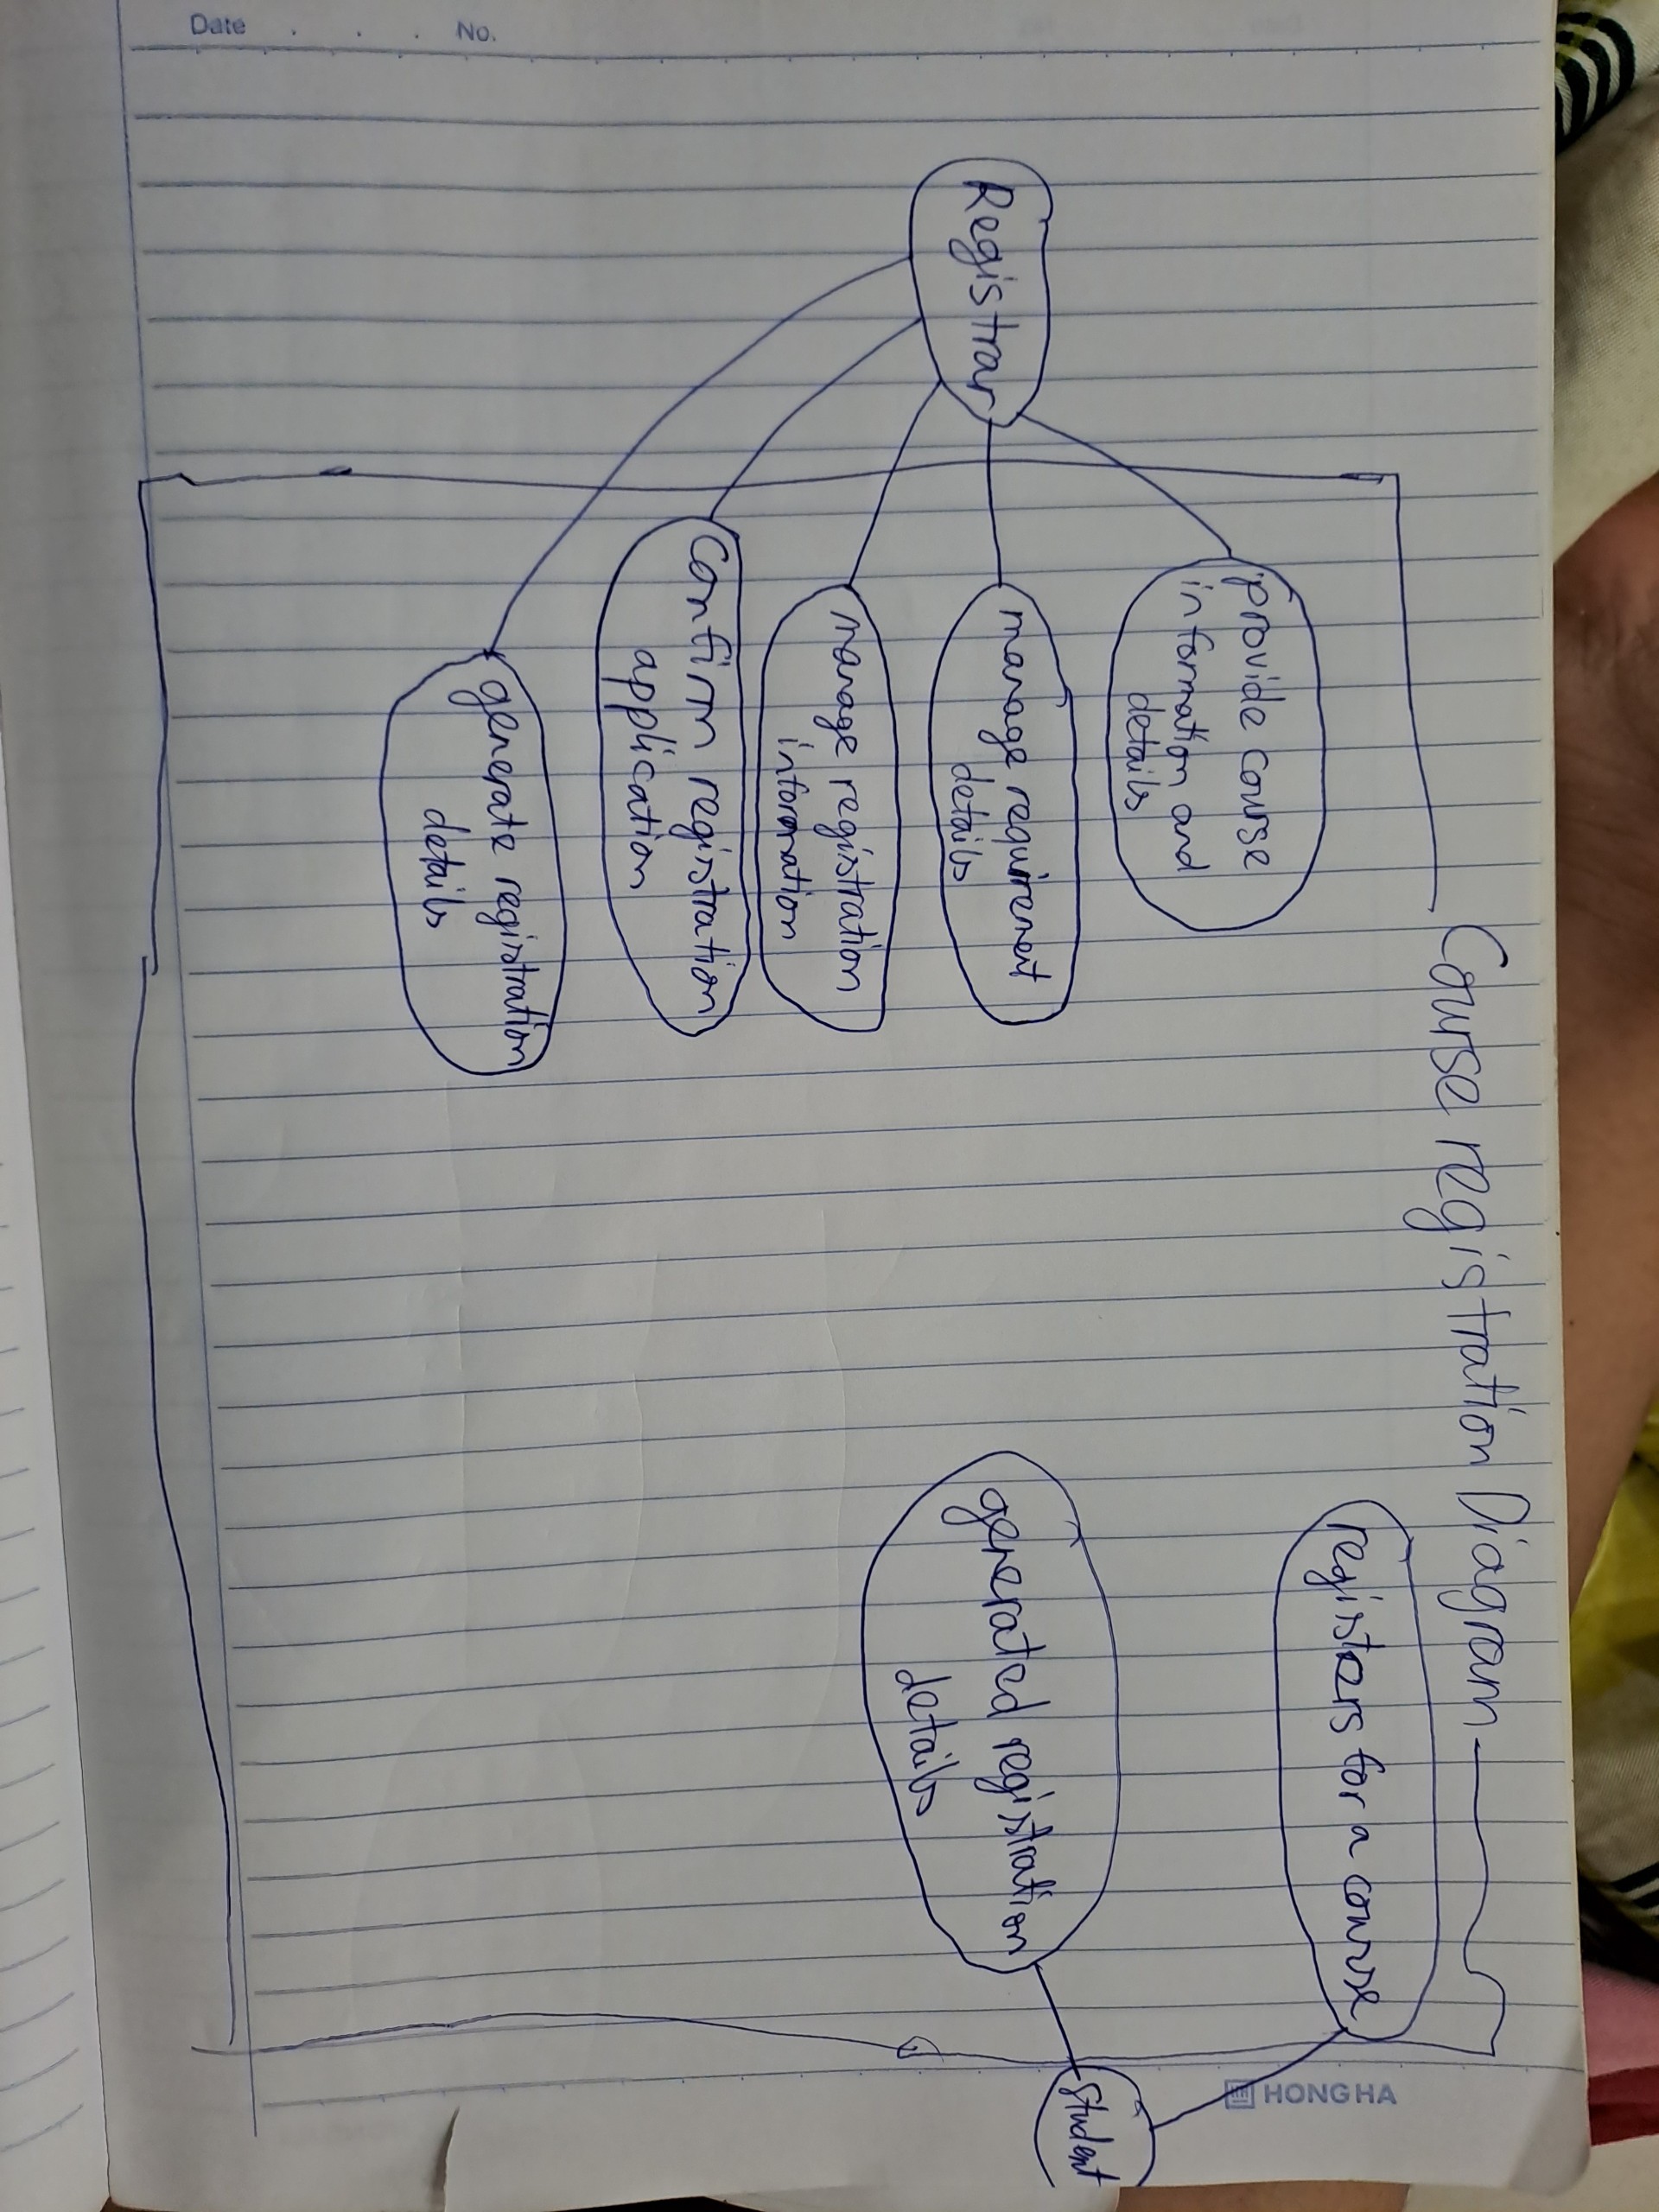 Course registration Diagram
Registrar
provide course
information and
details
manage requirement
details
manage registration
information
Confirm registration
application
generate registration
details
registers for a course
generated registration
details
Student
Date . . . No.
HONG HA